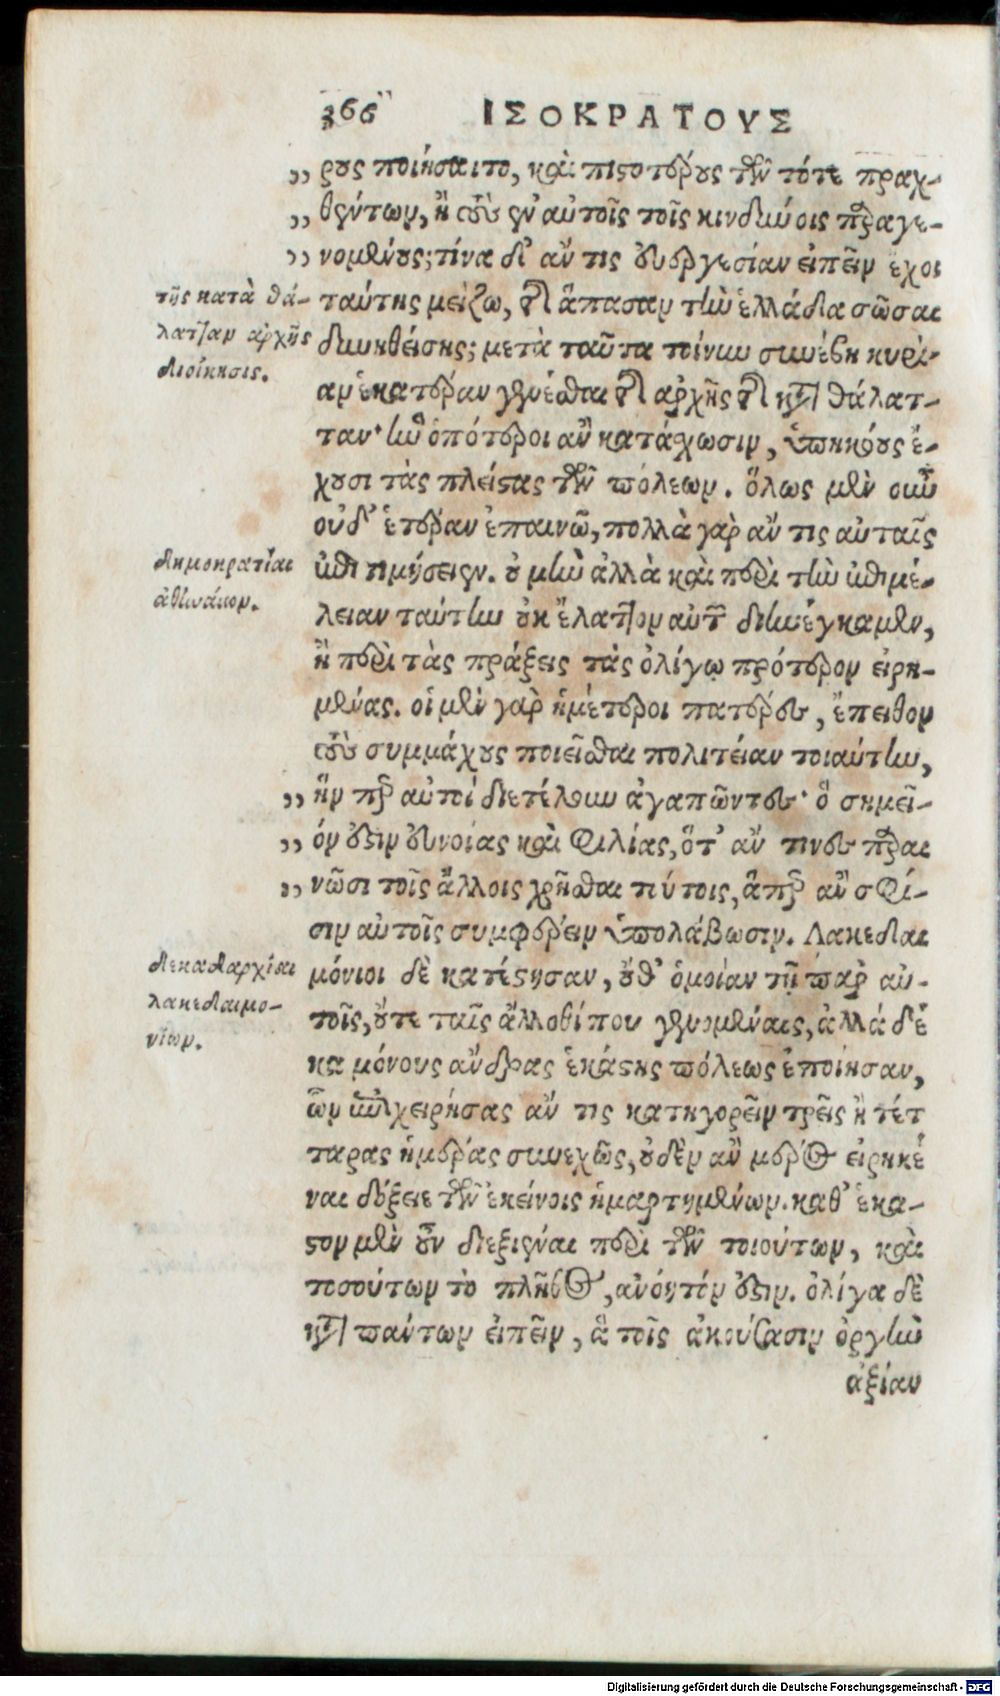 366 ΙΣΟΚΡΑΤΟΥΣ
„ ρους ποιήσαιτο, καὶ πιστοτέρους τῶν τότε πραχ-
„ θέντων, ἢ τοὺς ἐν αὐτοῖς τοῖς κινδύνοις παραγε-
„ νομένους; τίνα δ' ἄν τις εὐεργεσίαν εἰπεῖν ἔχοι
ταύτης μείζω, τῆς ἅπασαν τὴν ἑλλάδα σῶσαι
δυνηθείσης; μετὰ ταῦτα τοίνυν συνέβη κυρί-
αν ἑκατέραν γενέσθαι τῆς ἀρχῆς τῆς κατὰ θάλατ-
ταν· ἣν ὁπότεροι ἂν κατάσχωσιν, ὑπηκόους ἔ-
χουσι τὰς πλείστας τῶν πόλεων. ὅλως μὲν οὖν
οὐδ' ἑτέραν ἐπαινῶ, πολλὰ γὰρ ἄν τις αὐταῖς
ἐπιτιμήσειεν. οὐ μὴν ἀλλὰ καὶ περὶ τὴν ἐπιμέ-
λειαν ταύτην οὐκ ἔλαττον αὐτῶν διηνέγκαμεν,
ἢ περὶ τὰς πράξεις τὰς ὀλίγῳ πρότερον εἰρη-
μένας. οἱ μὲν γὰρ ἡμέτεροι πατέρες, ἔπειθον
τοὺς συμμάχους ποιεῖσθαι πολιτείαν τοιαύτην,
„ ἥν περ αὐτοί διετέλουν ἀγαπῶντες· ὃ σημεῖ-
„ όν ἐστιν εὐνοίας καὶ φιλίας, ὅτ' ἄν τινες παραι
„ νῶσι τοῖς ἄλλοις χρῆσθαι τούτοις, ἅπερ ἂν σφί-
σιν αὐτοῖς συμφέρειν ὑπολάβωσιν. Λακεδαι
μόνιοι δὲ κατέστησαν, οὔθ' ὁμοίαν τῇ παρ αὐ-
τοῖς, οὔτε ταῖς ἄλλοθί που γενομέναις, ἀλλά δέ
κα μόνους ἄνδρας ἑκάστης πόλεως ἐποίησαν,
ὧν ἐπιχειρήσας ἄν τις κατηγορεῖν τρεῖς ἢ τέτ
ταρας ἡμέρας συνεχῶς, οὐδὲν ἂν μέρος εἰρηκέ
ναι δόξειε τῶν ἐκείνοις ἡμαρτημένων. καθ' ἕκα-
στον μὲν οὖν διεξιέναι περὶ τῶν τοιούτων, καὶ
τοσούτων τὸ πλῆθος, ἀνόητόν ἐστιν. ὀλίγα δὲ
κατὰ πάντων εἰπεῖν, ἃ τοῖς ἀκούσασιν ὀργὴν
ἀξίαν
τῆς κατὰ θά-
λατταν ἀρχῆς
διοίκησις.
δημοκρατίαι
ἀθηναίων.
δεκαδαρχίαι
λακεδαιμο-
νίων.
Digitalisierung gefördert durch die Deutsche Forschungsgemeinschaft - DFG